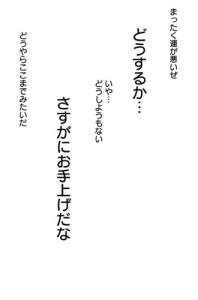 まったく運が悪いぜ
どうするか…
いや…
どうしようもない
さすがにお手上げだな
どうやらここまでみたいだ